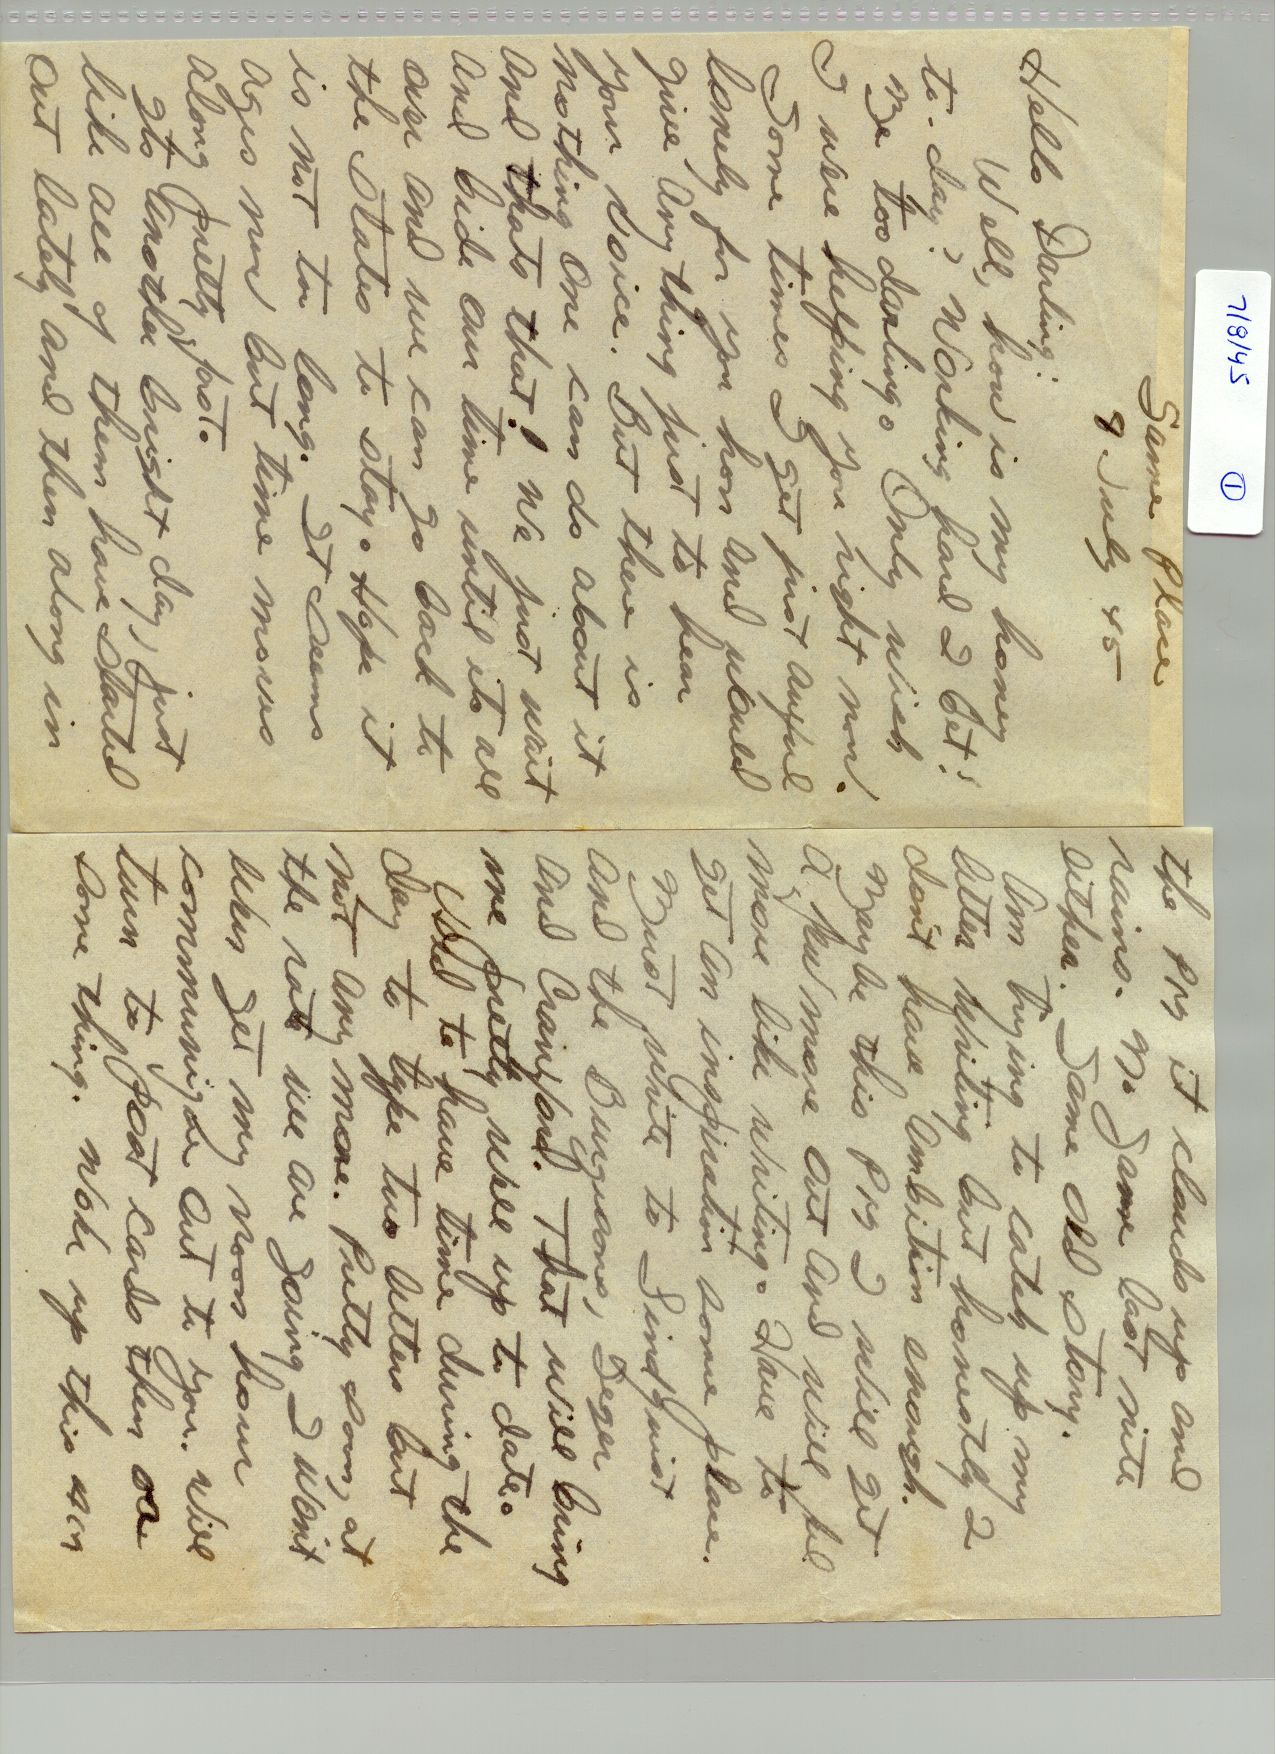 7/9/45 ①
Same Place
9 July 45
Hello Darling:
Well, how is my honey
to-day? Working hard I bet!
Me too darling. Only wish
I were helping you right now.
Some times I get just awful
lonely for you hon and would
give any thing just to hear
your voice. But there is
nothing one can do about it
and thats that! We just wait
and bide our time until its all
over and we can go back to
the States to stay. Hope it
is not too long. It seems
ages now but time moves
along pretty fast.
Its another bright day, just
like all of them have started
out lately and then along in
the P.M. it clouds up and
rains. No game last nite
either. Same old story.
Am trying to catch up my
letter writing but honestly I
don't have ambition enough.
Maybe this P.M. I will get
a few more out and will feel
more like writing. Have to
get an inspiration some place.
Must write to Lindquist
and the Burgoons, Seger
and Crawford. That will bring
me pretty well up to date.
Used to have time during the
day to type two letters but
not any more. Pretty soon, at
the rate we are going I won't
even get my noon hour
communique out to you. Will
turn to post cards then or
some thing. Woke up this A.M.